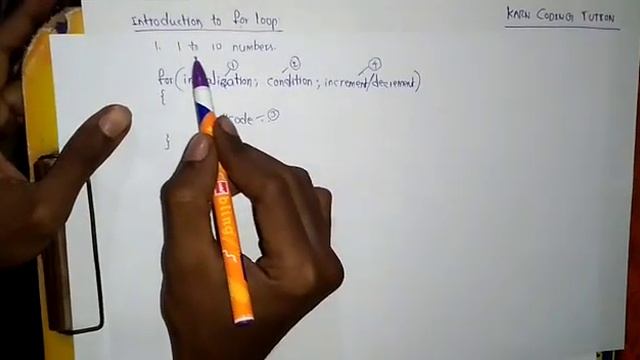 Introduction to for loop
KARN CODING TUTION
1. 1 to 10 numbers.
for( condition ; increment/decrement)
1 2 4
{
code - 3
}